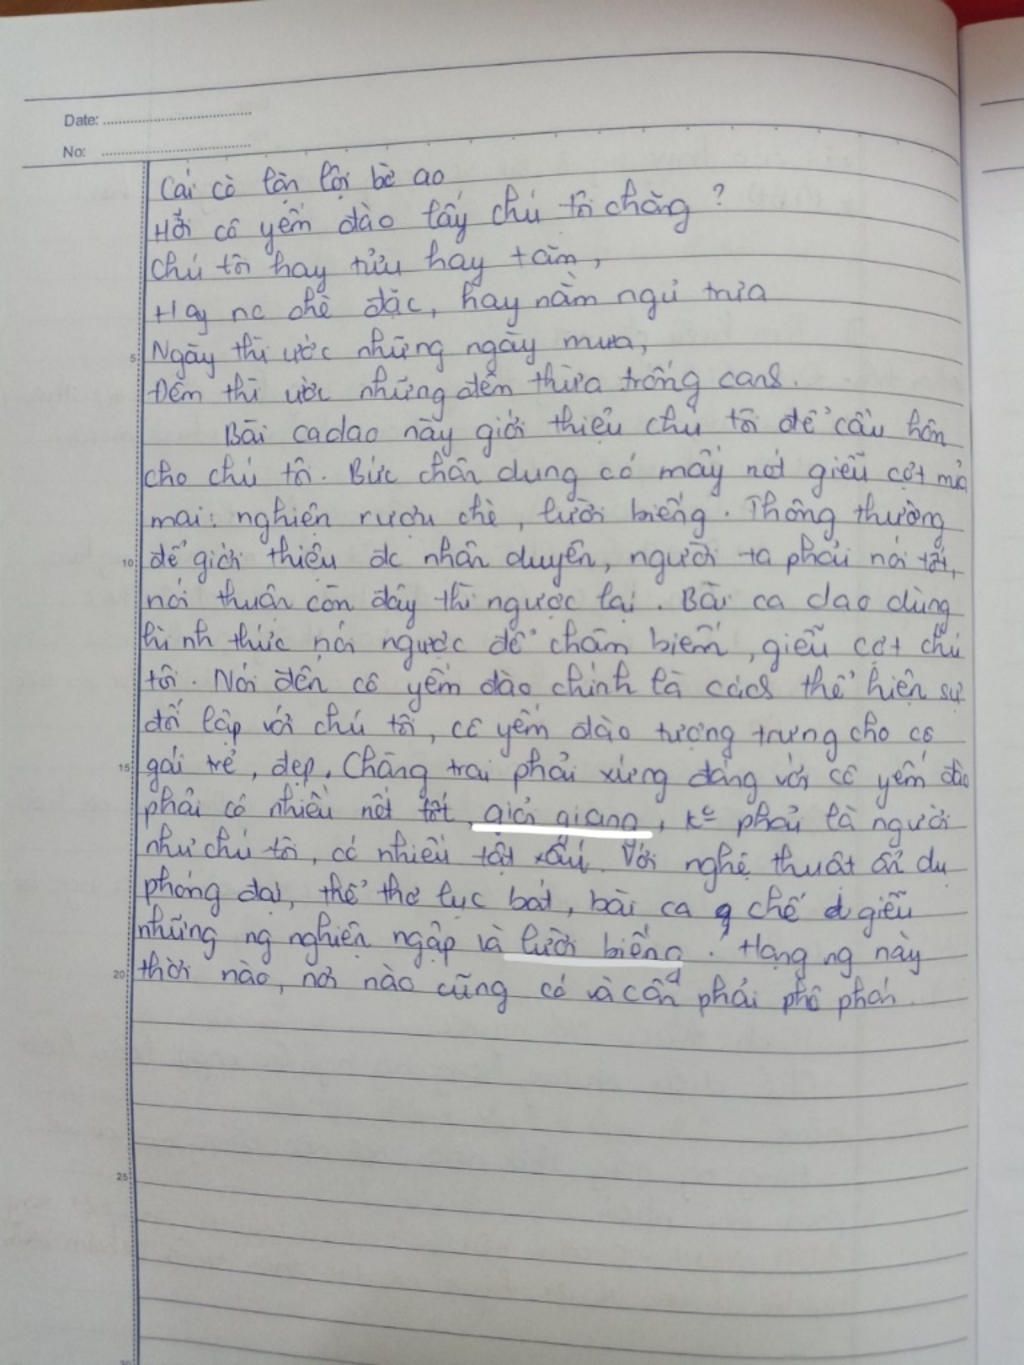 Date:
No:
Cái cò lặn lội bờ ao
Hỡi cô yếm đào lấy chú tôi chăng?
Chú tôi hay tửu hay tăm,
Hay nc chè đặc, hay nằm ngủ trưa
Ngày thì ước những ngày mưa,
Đêm thì ước những đêm thừa trống canh.
Bài ca dao này giới thiệu chú tôi để cầu hôn
cho chú tôi. Bức chân dung có mấy nét giễu cợt mỉa
mai: nghiện rượu chè, lười biếng. Thông thường
để giới thiệu dc nhân duyên, người ta phải nói tốt,
nói thuận còn đây thì ngược lại. Bài ca dao dùng
hình thức nói ngược để châm biếm, giễu cợt chú
tôi. Nói đến cô yếm đào chính là cách thể hiện sự
đối lập với chú tôi, cô yếm đào tượng trưng cho cô
gái trẻ, đẹp. Chàng trai phải xứng đáng với cô yếm đào
phải có nhiều nét tốt, giỏi giang, k phải là người
như chú tôi, có nhiều tật xấu. Với nghệ thuật ẩn dụ
phóng đại, thể thơ lục bát, bài ca chế giễu
những ng nghiện ngập và lười biếng. Hạng ng này
thời nào, nơi nào cũng có và cần phải phê phán.
5
10
15
20
25
30